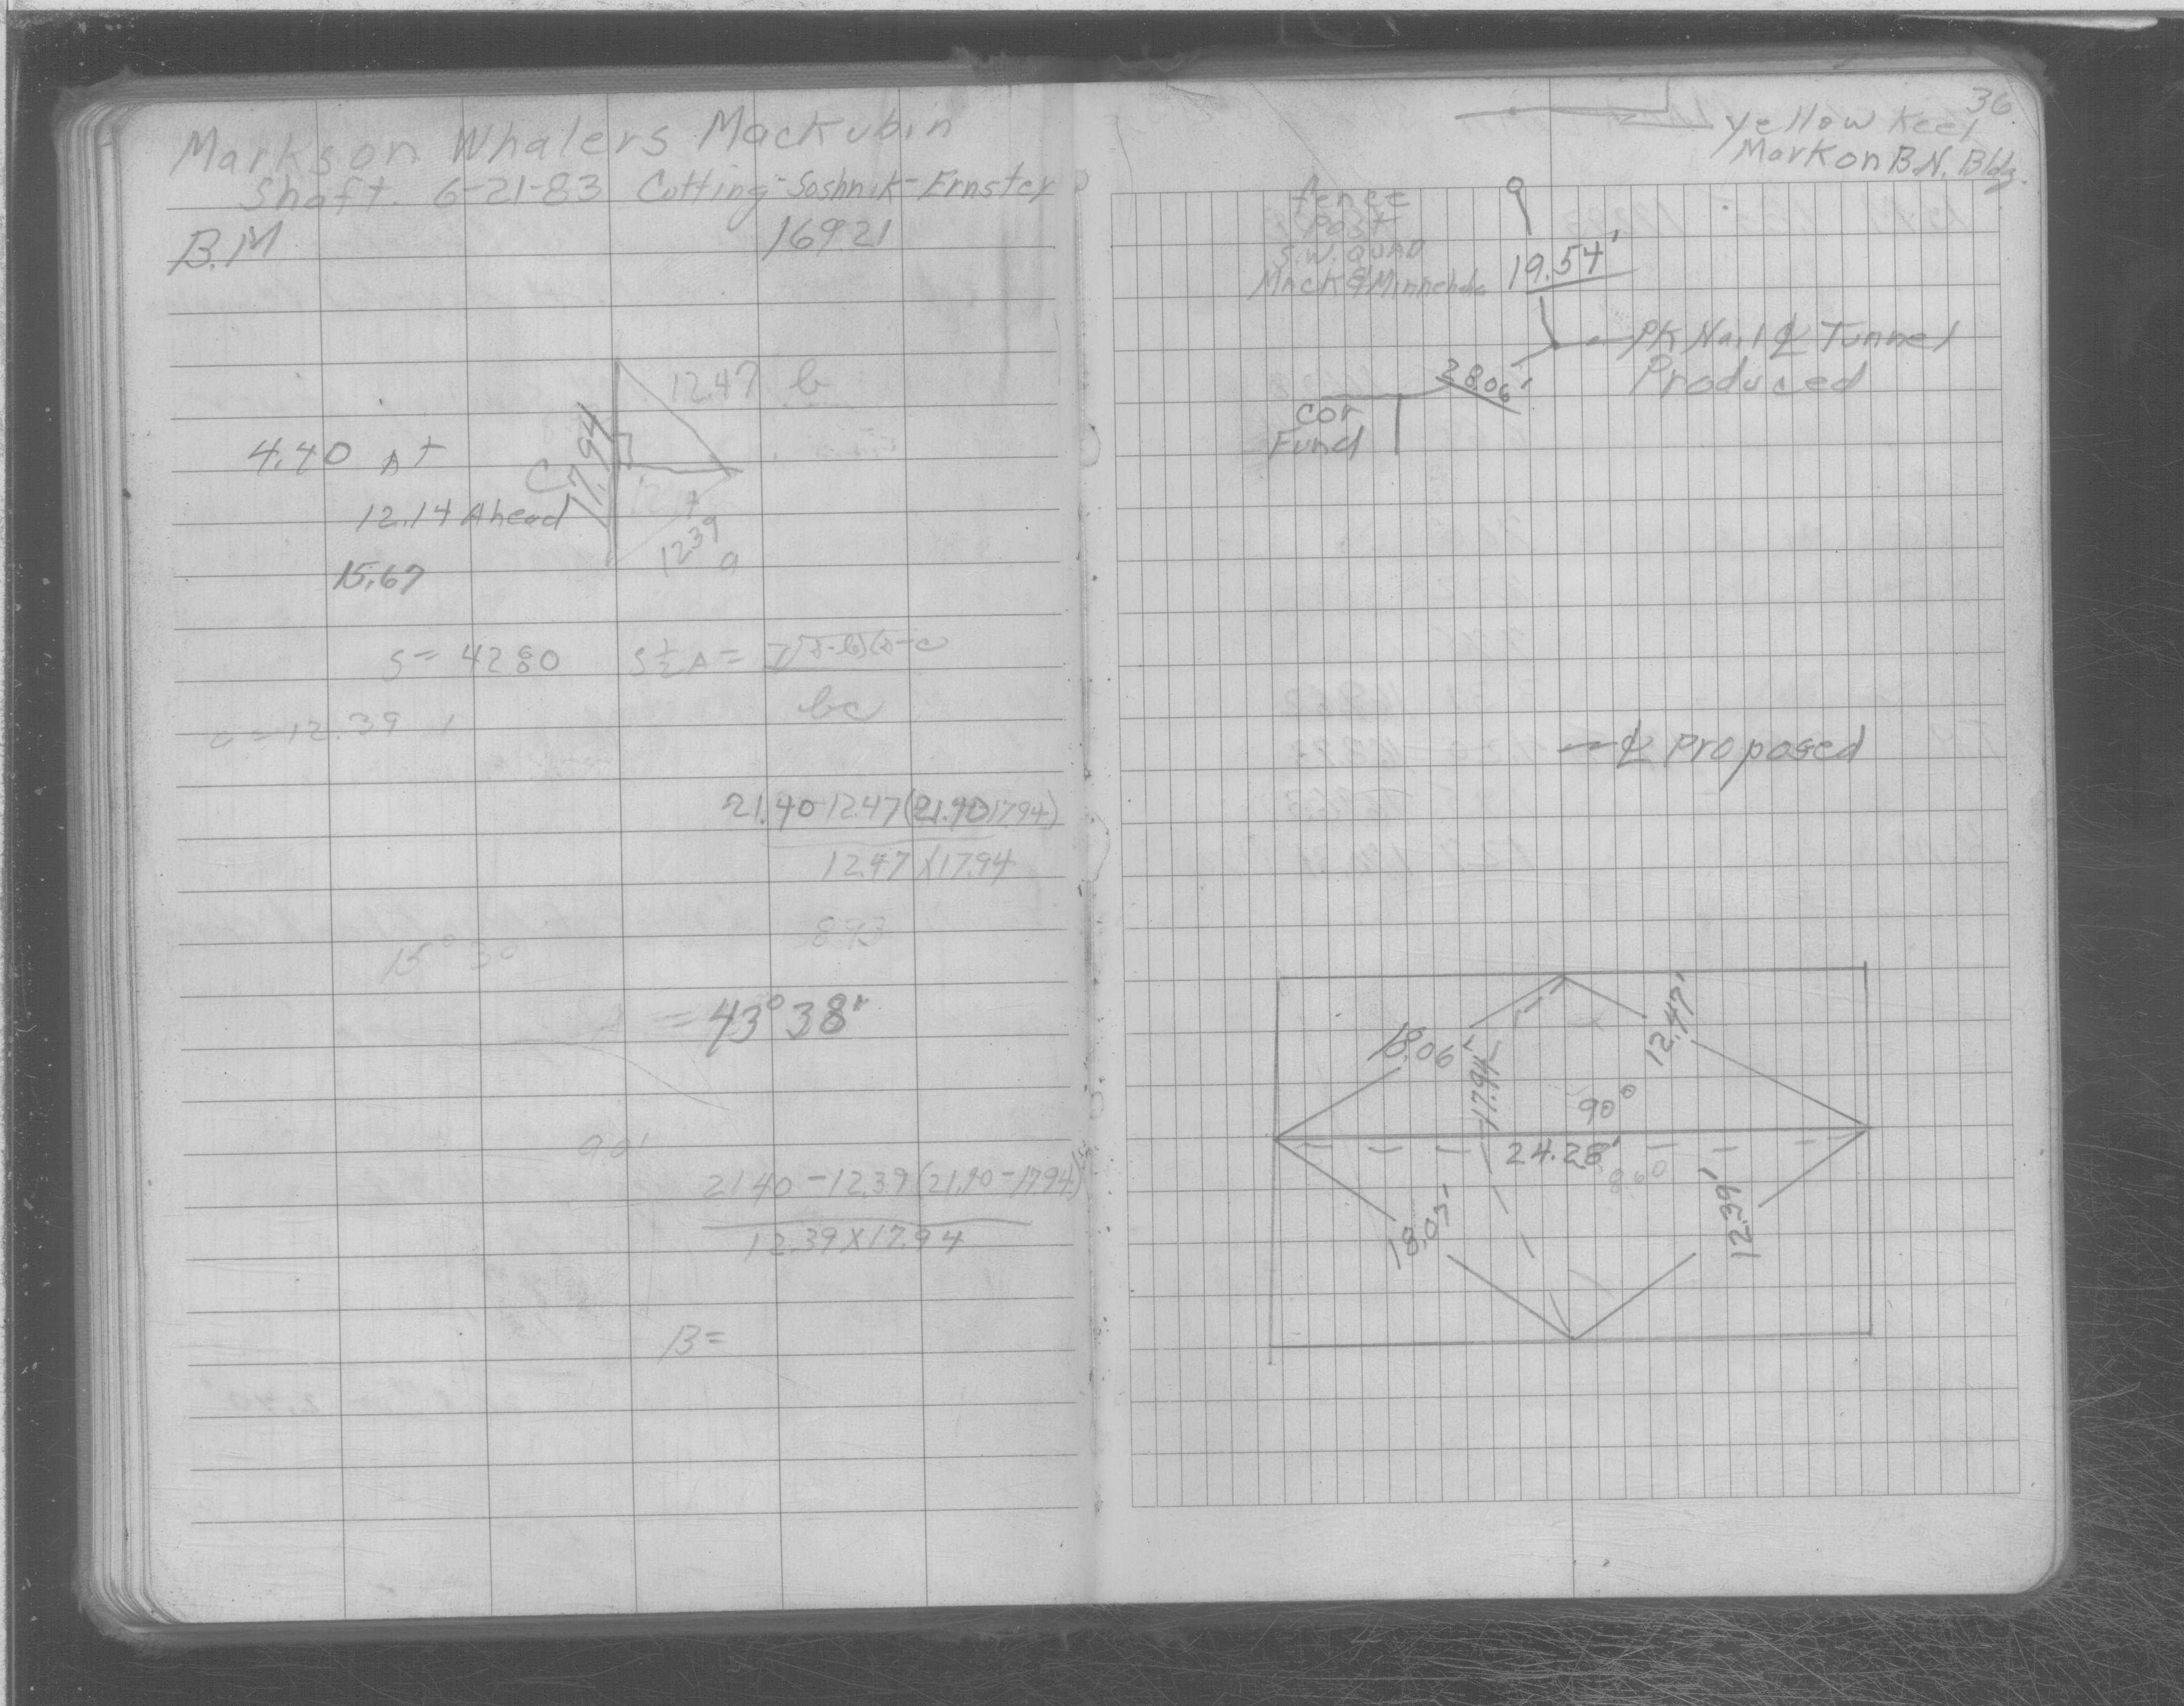 Marks on Whalers Mackubin
Shaft. 6-21-83 Cotting-Soshnik-Ernster
B.M 169.21
12.47 b
17.94
C
4.40 At
12.14 Ahead
12.39
a
15.67
S = 42.80 S ½ A = √(s-b)(s-c)
bc
a = 12.39
21.40-12.47(21.40 17.94)
12.47 X 17.94
8.93
15° 30
= 43° 38'
90'
21.40 - 12.39 (21.40 - 17.94)
12.39 X 17.94
B =
36
Yellow Keel
Mark on B.N. Bldg.
fence
Post
S.W. Quad
Mack & Minnehaha
19.54'
PK Nail ℄ Tunnel
Produced
28.06'
Cor
Fund
℄ Proposed
18.06'
17.94'
12.47'
90°
24.28'
8.60
18.05'
12.39'